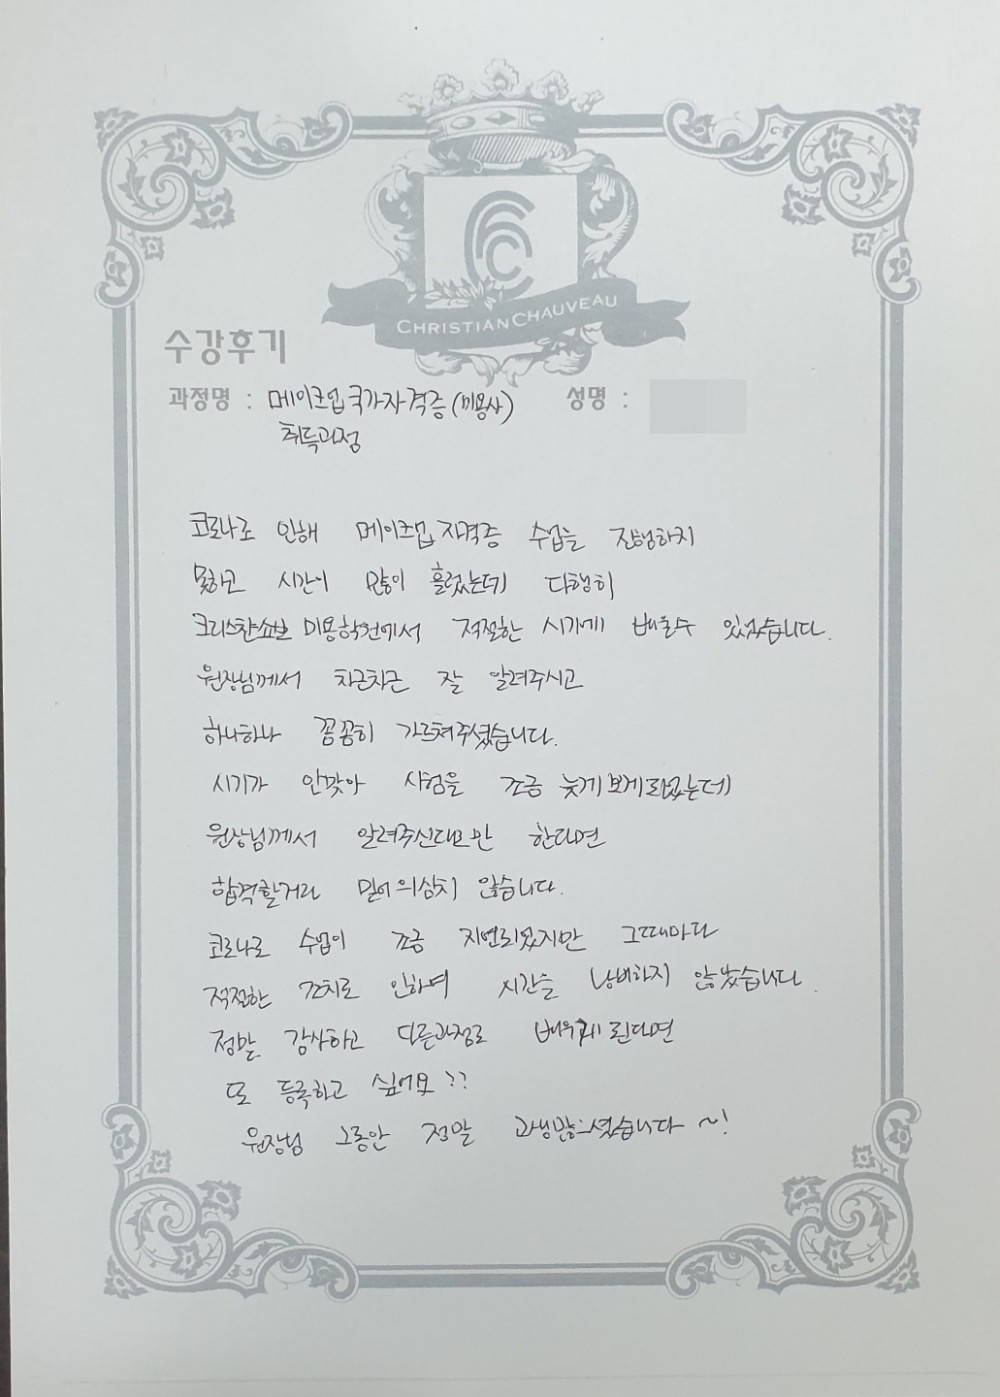 CHRISTIAN CHAUVEAU
수강후기
과정명 : 메이크업 국가자격증(미용사) 성명 :
취득과정
코로나로 인해 메이크업 자격증 수업을 진행하지
못하고 시간이 많이 흘렀는데 다행히
크리스챤쇼보 미용학원에서 적절한 시기에 배울수 있었습니다.
원장님께서 차근차근 잘 알려주시고
하나하나 꼼꼼히 가르쳐주셨습니다.
시기가 안맞아 시험을 조금 늦게 보게되었는데
원장님께서 알려주신대로만 한다면
합격할거라 믿어 의심치 않습니다.
코로나로 수업이 조금 지연되었지만 그때마다
적절한 조치로 인하여 시간을 낭비하지 않았습니다.
정말 감사하고 다른과정도 배우게 된다면
또 등록하고 싶어요 ??
원장님 그동안 정말 고생많으셨습니다 ~!